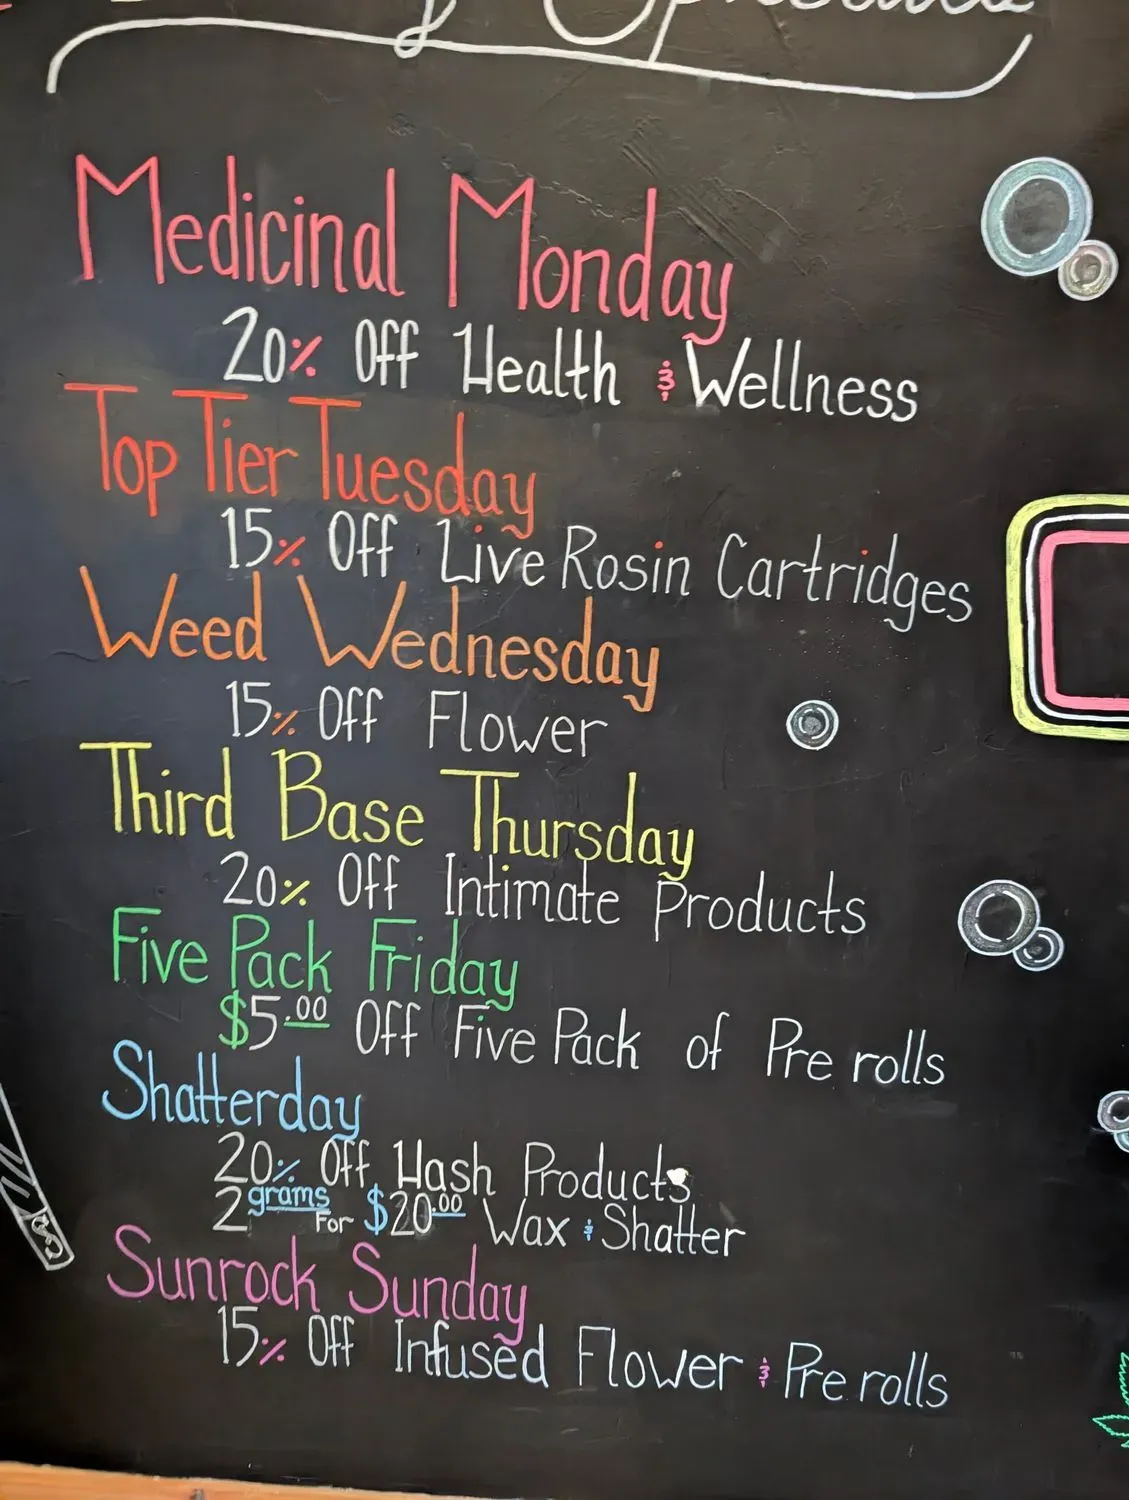 Medicinal Monday
20% Off Health & Wellness
Top Tier Tuesday
15% Off Live Rosin Cartridges
Weed Wednesday
15% Off Flower
Third Base Thursday
20% Off Intimate Products
Five Pack Friday
$5.00 Off Five Pack of Pre rolls
Shatterday
20% Off Hash Products
2 grams For $20.00 Wax & Shatter
Sunrock Sunday
15% Off Infused Flower & Pre rolls